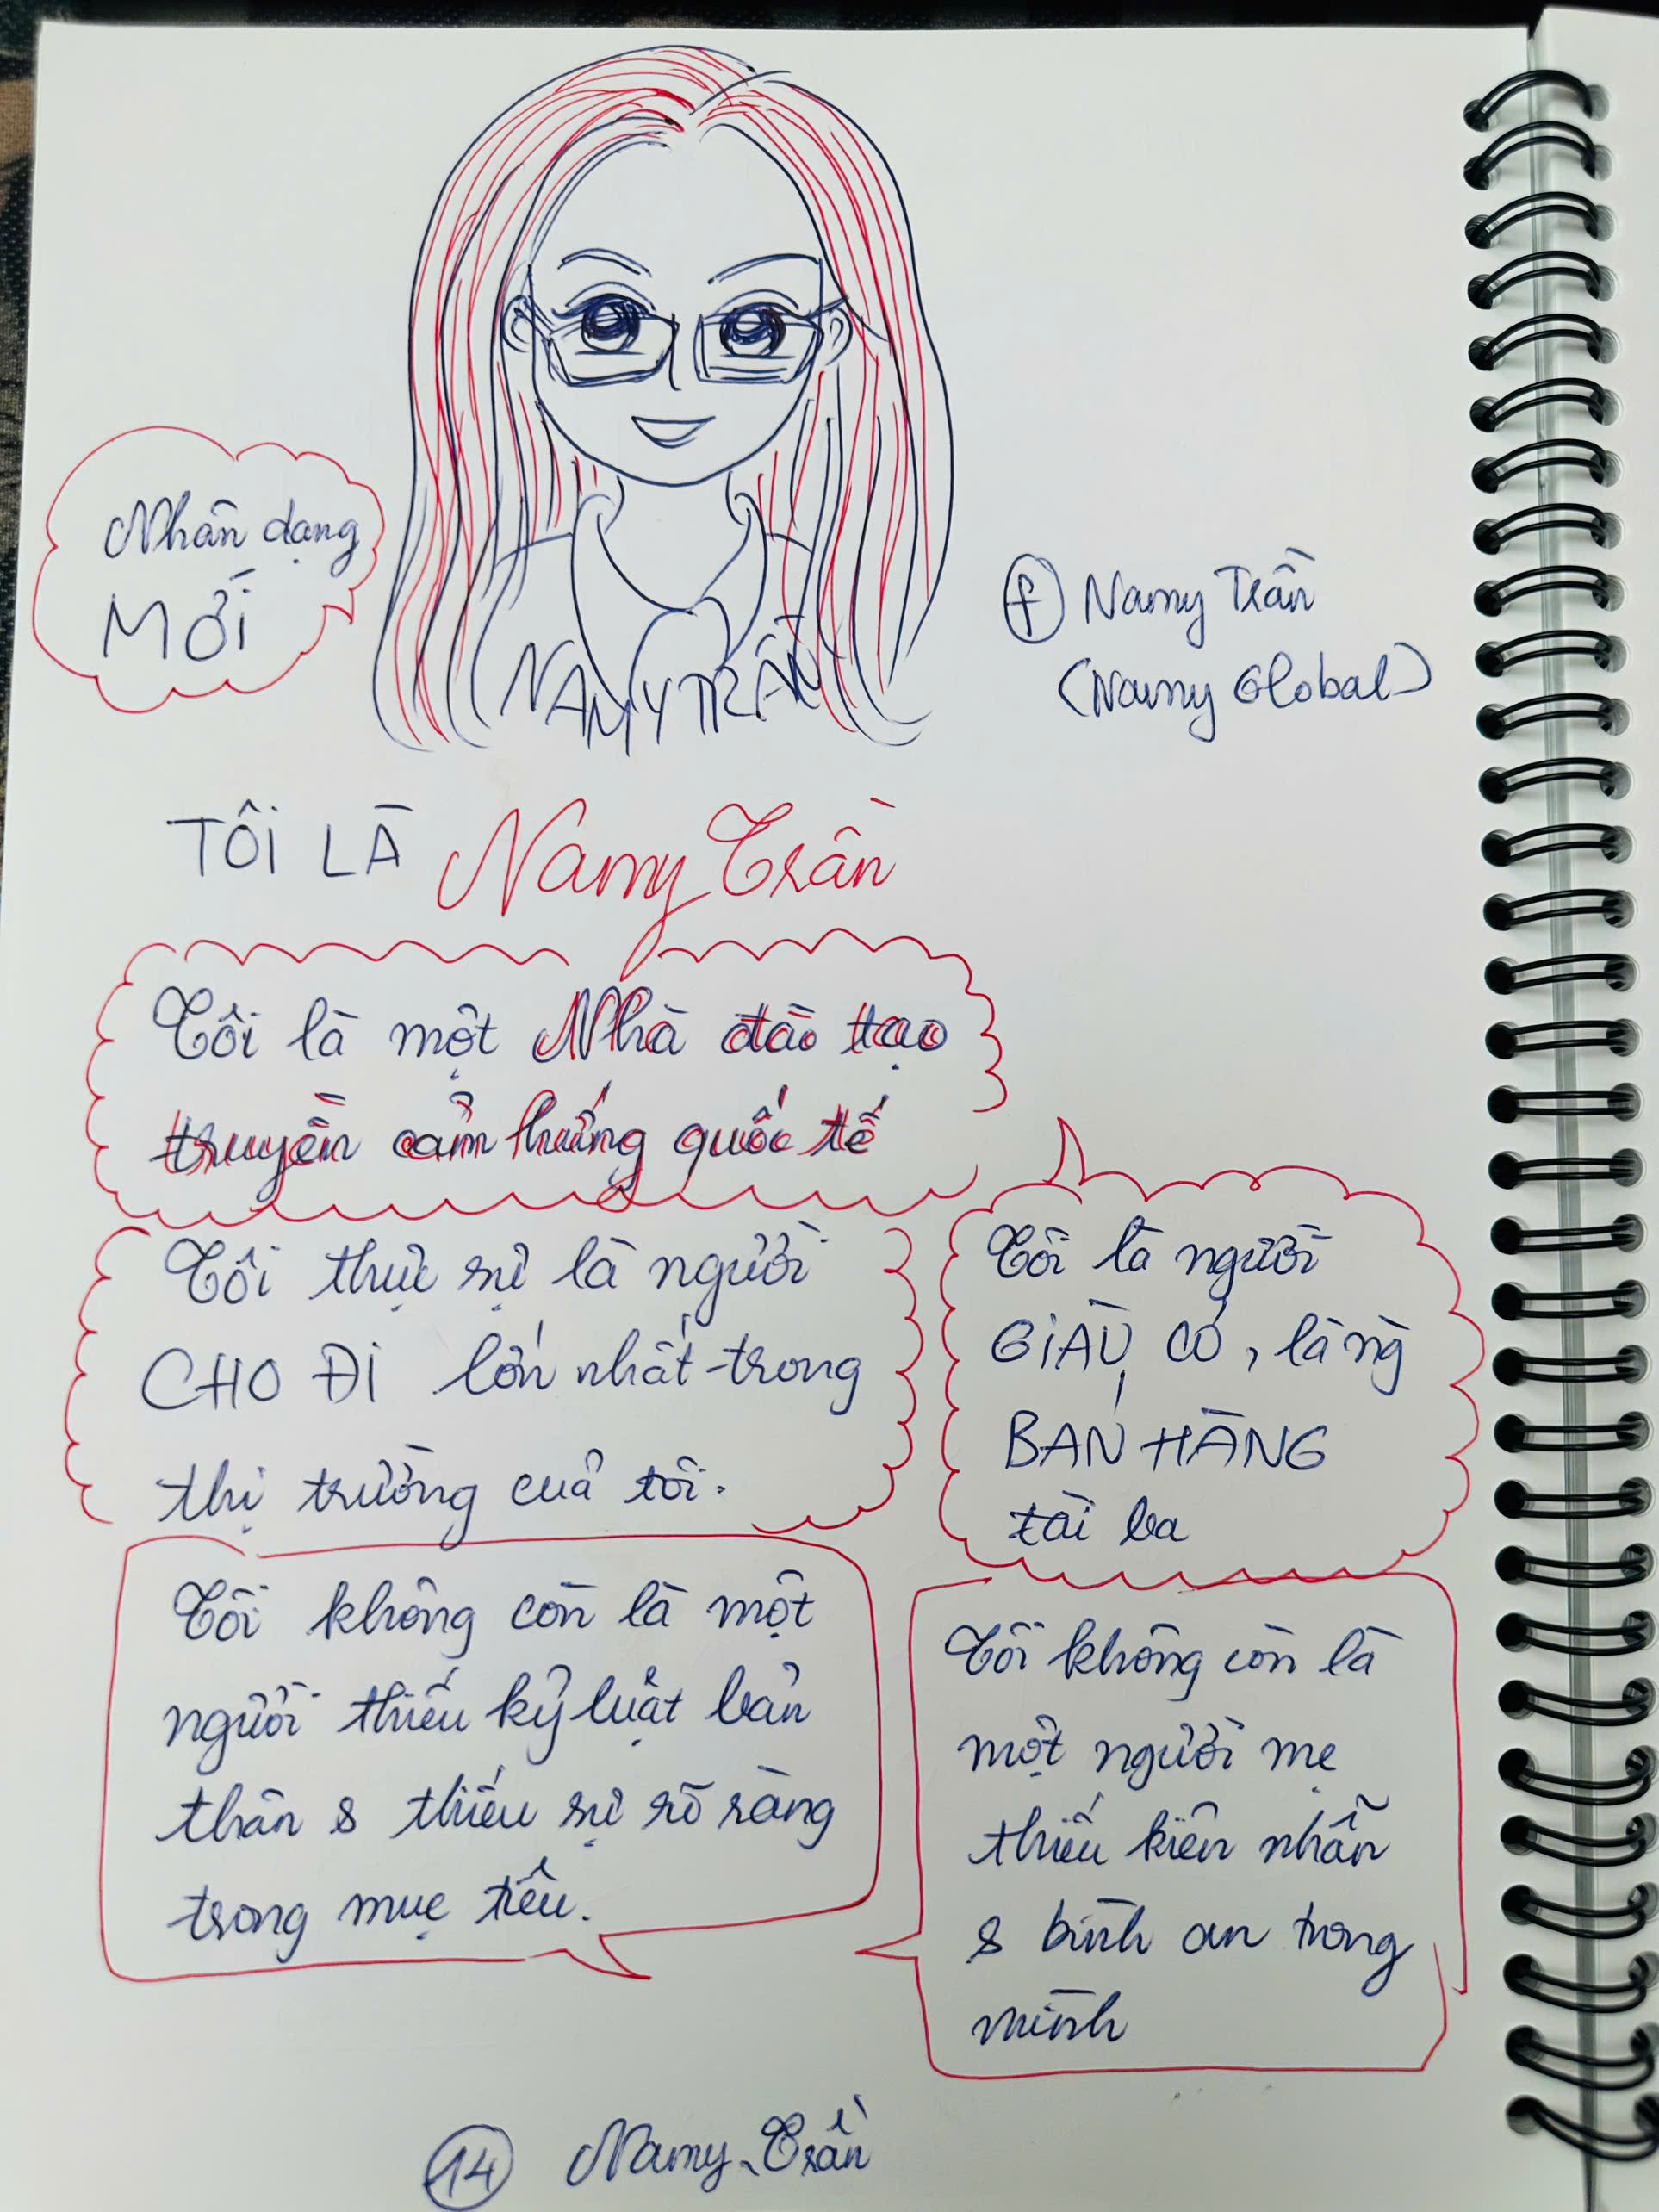 Nhân dạng
MỚI
NAMY TRẦN
f Namy Trần
(Namy Global)
TÔI LÀ Namy Trần
Tôi là một Nhà đào tạo
truyền cảm hứng quốc tế
Tôi thực sự là người
CHO ĐI lớn nhất trong
thị trường của tôi.
Tôi là người
GIÀU CÓ, là ng
BÁN HÀNG
tài ba
Tôi không còn là một
người thiếu kỷ luật bản
thân & thiếu sự rõ ràng
trong mục tiêu.
Tôi không còn là
một người mẹ
thiếu kiên nhẫn
& bình an trong
mình
14 Namy Trần